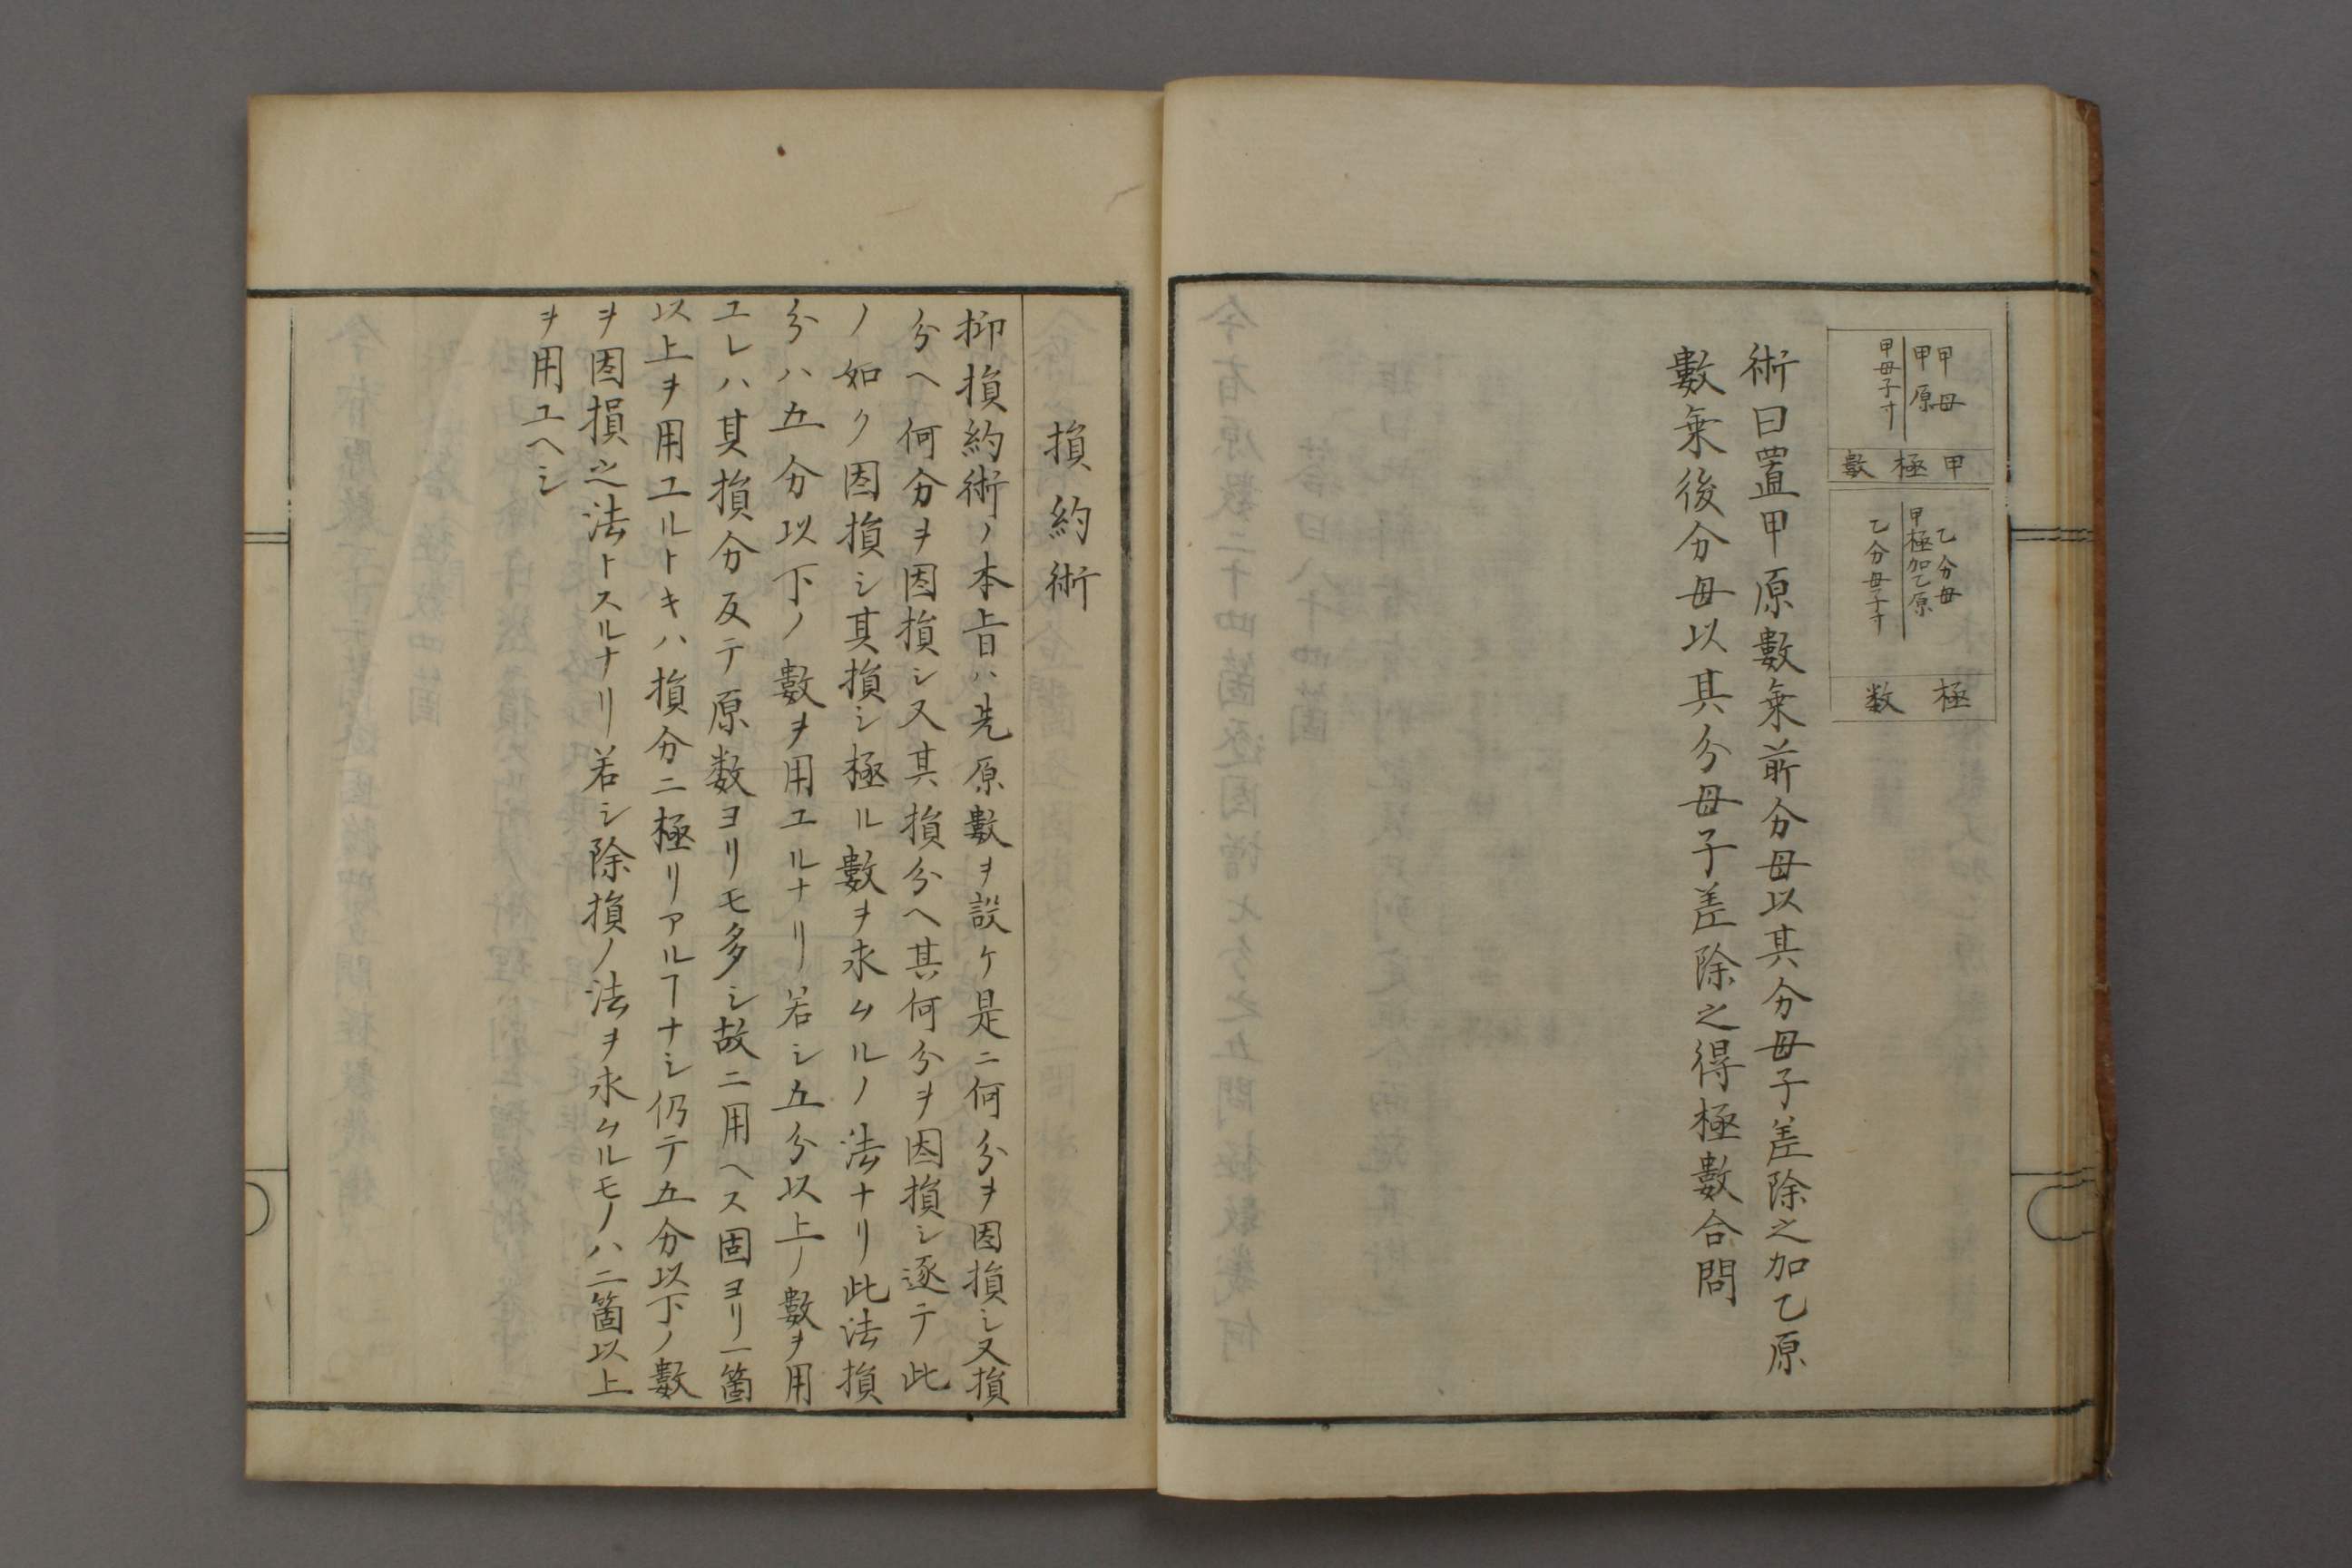 甲母
甲原
甲母子寸
甲極數
乙分母
甲極加乙原
乙分母子寸
極数
術曰置甲原數乗前分母以其分母子差除之加乙原
數乗後分母以其分母子差除之得極數合問
損約術
抑損約術ノ本旨ハ先原數ヲ設ケ是ニ何分ヲ因損シ又損
分ヘ何分ヲ因損シ又其損分ヘ其何分ヲ因損シ逐テ此
ノ如ク因損シ其損シ極ル數ヲ求ムルノ法ナリ此法損
分ハ五分以下ノ數ヲ用ユルナリ若シ五分以上ノ數ヲ用
ユレハ其損分反テ原数ヨリモ多シ故ニ用ヘス固ヨリ一箇
以上ヲ用ユルトキハ損分ニ極リアルヿナシ仍テ五分以下ノ數
ヲ因損之法トスルナリ若シ除損ノ法ヲ求ムルモノハ二箇以上
ヲ用ユヘシ